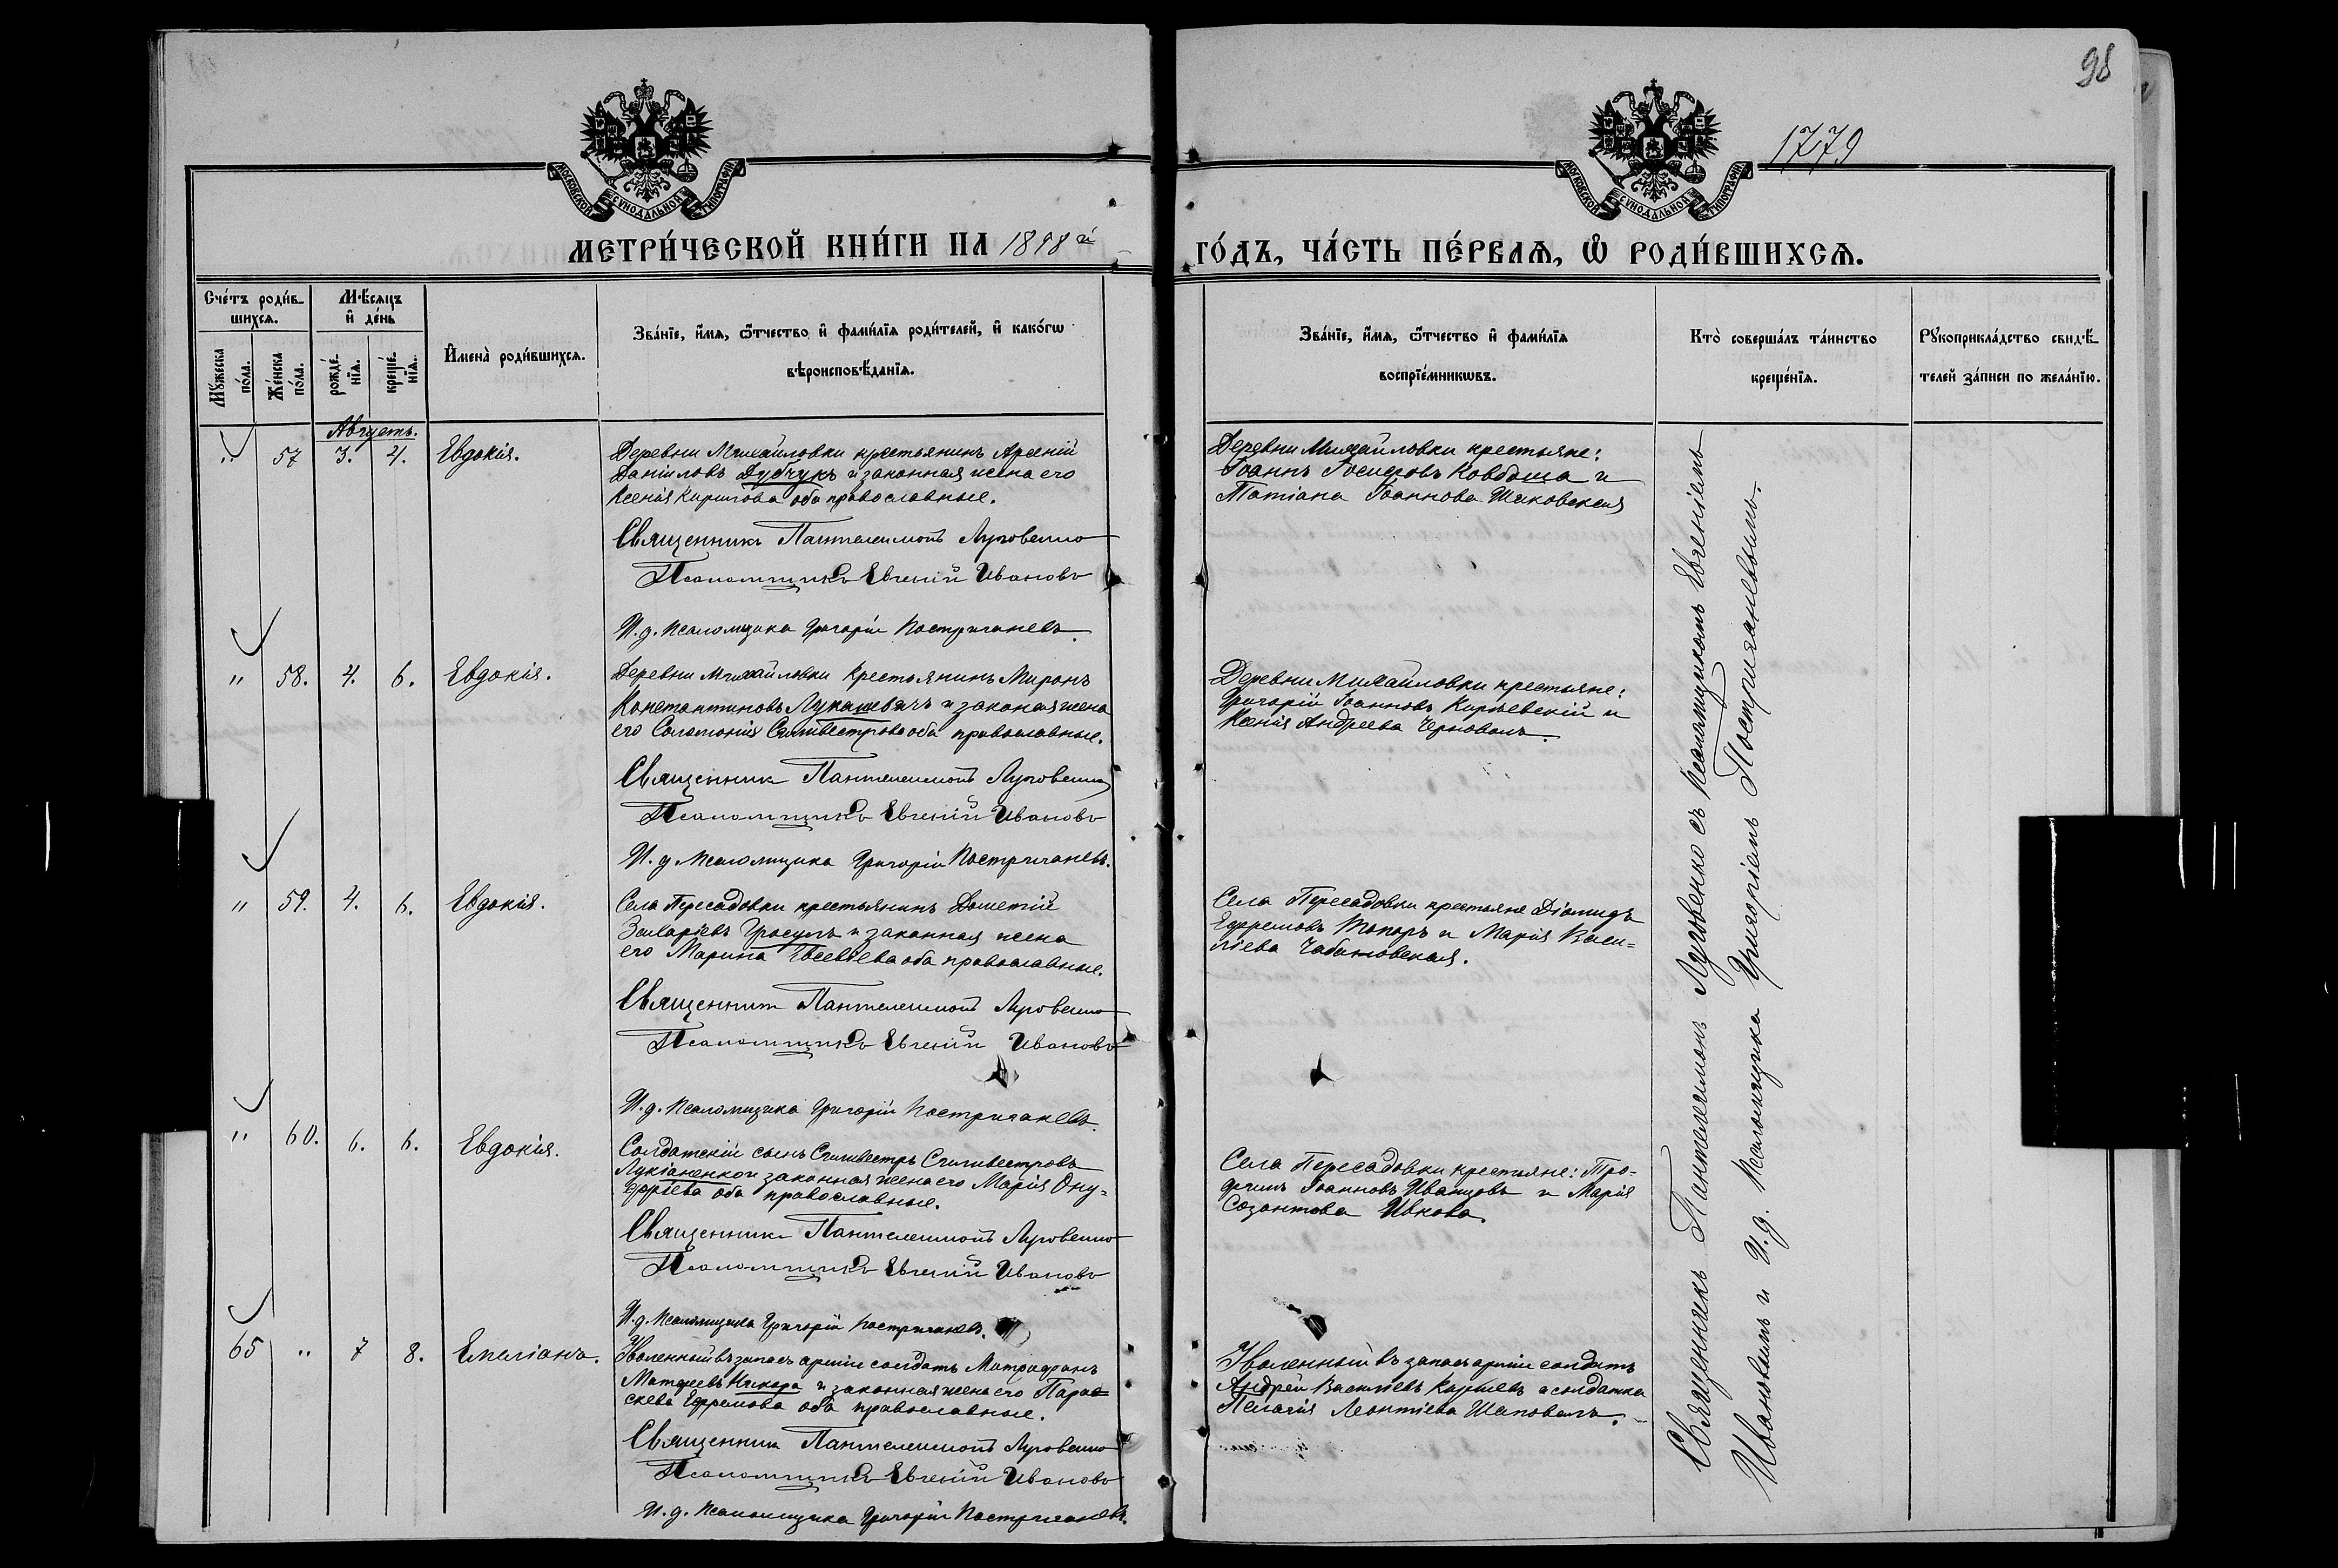 98
1779
МОСКОВСКОЙ СѴНОДАЛЬНОЙ ТИПОГРАФІИ
МОСКОВСКОЙ СѴНОДАЛЬНОЙ ТИПОГРАФІИ
МЕТРИ́ЧЕСКОЙ КНИ́ГИ НА 1898 й
ГО́ДЪ, ЧА́СТЬ ПЕ́РВАѦ, Ѿ РОДИ́ВШИХСѦ.
Сче́тъ роди́в-
шихсѧ.
Мꙋ́жеска
по́ла.
Же́нска
по́ла.
М҆ѣсѧцъ
и҆ де́нь
рожде́-
нїѧ.
креще́-
нїѧ.
И҆мена̀ роди́вшихсѧ.
Зва́нїе, и҆́мѧ, ѻ҆́тчество и҆ фами́лїѧ роди́телей, и҆ како́гѡ
вѣроисповѣ́данїѧ.
Зва́нїе, и҆́мѧ, ѻ҆́тчество и҆ фами́лїѧ
воспрїе́мникѡвъ.
Кто̀ соверша́лъ та́инство
креще́нїѧ.
Рꙋкоприкла́дство свидѣ́-
телей за́писи по жела́нїю.
Августъ.
" 57 3. 4. Евдокія.
Деревни Михайловки крестьянинъ Арсеній
Даніиловъ Дубчукъ и законная жена его
Ксенія Кирилова оба православные.
Священникъ Пантелеимонъ Луговенко
Псаломщикъ Евгеній Ивановъ
И. д. псаломщика Григорій Постриганевъ.
Деревни Михайловки крестьяне:
Іоаннъ Іосифовъ Ковбаша и
Татіана Іоаннова Шиковская
" 58. 4. 6. Евдокія.
Деревни Михайловки крестьянинъ Миронъ
Константиновъ Лукашевичъ и законая жена
его Соломонія Силивестрова оба православные.
Священникъ Пантелеимонъ Луговенко
Псаломщикъ Евгеній Ивановъ
И. д. псаломщика Григорій Постриганевъ.
Деревни Михайловки крестьяне:
Григорій Іоанновъ Киріевскій и
Ксенія Андреева Черноволъ.
" 59. 4. 6. Евдокія.
Села Пересадовки крестьянинъ Дометій
Захаріевъ Гросулъ и законная жена
его Марина Евсевіева оба православные.
Священникъ Пантелеимонъ Луговенко
Псаломщикъ Евгеній Ивановъ
И. д. псаломщика Григорій Постриганевъ.
Села Пересадовки крестьяне Діомидъ
Ефремовъ Топоръ и Марія Васи-
ліева Чабановская.
" 60. 6. 6. Евдокія.
Солдатскій сынъ Силивестръ Силивестровъ
Лукіаненко и законная жена его Марія Ону-
фріева оба православные.
Священникъ Пантелеимонъ Луговенко
Псаломщикъ Евгеній Ивановъ
И. д. псаломщика Григорій Постриганевъ.
Села Пересадовки крестьяне: Тро-
фимъ Іоанновъ Иванцовъ и Марія
Созонтова Ивкова.
65 " 7 8. Емеліанъ.
Уволенный въ запасъ арміи солдатъ Митрофанъ
Матфеевъ Никора и законная жена его Парас-
кева Ефремова оба православные.
Священникъ Пантелеимонъ Луговенко
Псаломщикъ Евгеній Ивановъ
И. д. псаломщика Григорій Постриганевъ.
Уволенный въ запасъ арміи солдатъ
Андрей Василіевъ и солдатка
Пелагія Леонтіева Шаповалъ.
Священникъ Пантелеимонъ Луговенко съ псаломщикомъ Евгеніемъ
Ивановымъ и И. д. псаломщика Григоріемъ Постриганевымъ.